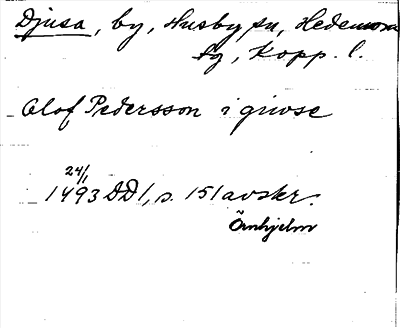 Djusa, by, Husby sn, Hedemora
tg, Kopp. l.
Olof Pedersson i giwse
24/1
1493 DD 1, s. 151 avskr.
Örnhjelm